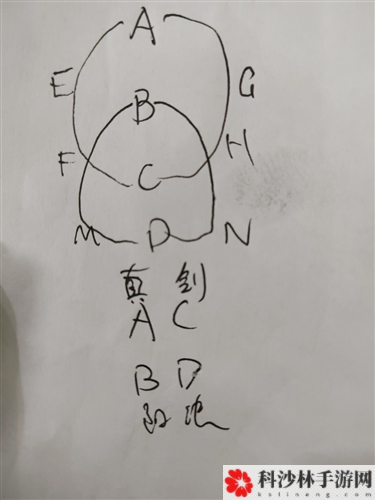 A
E G
B
F H
C
M D N
真 剑
A C
B D
科沙林手游网
kslineng.com